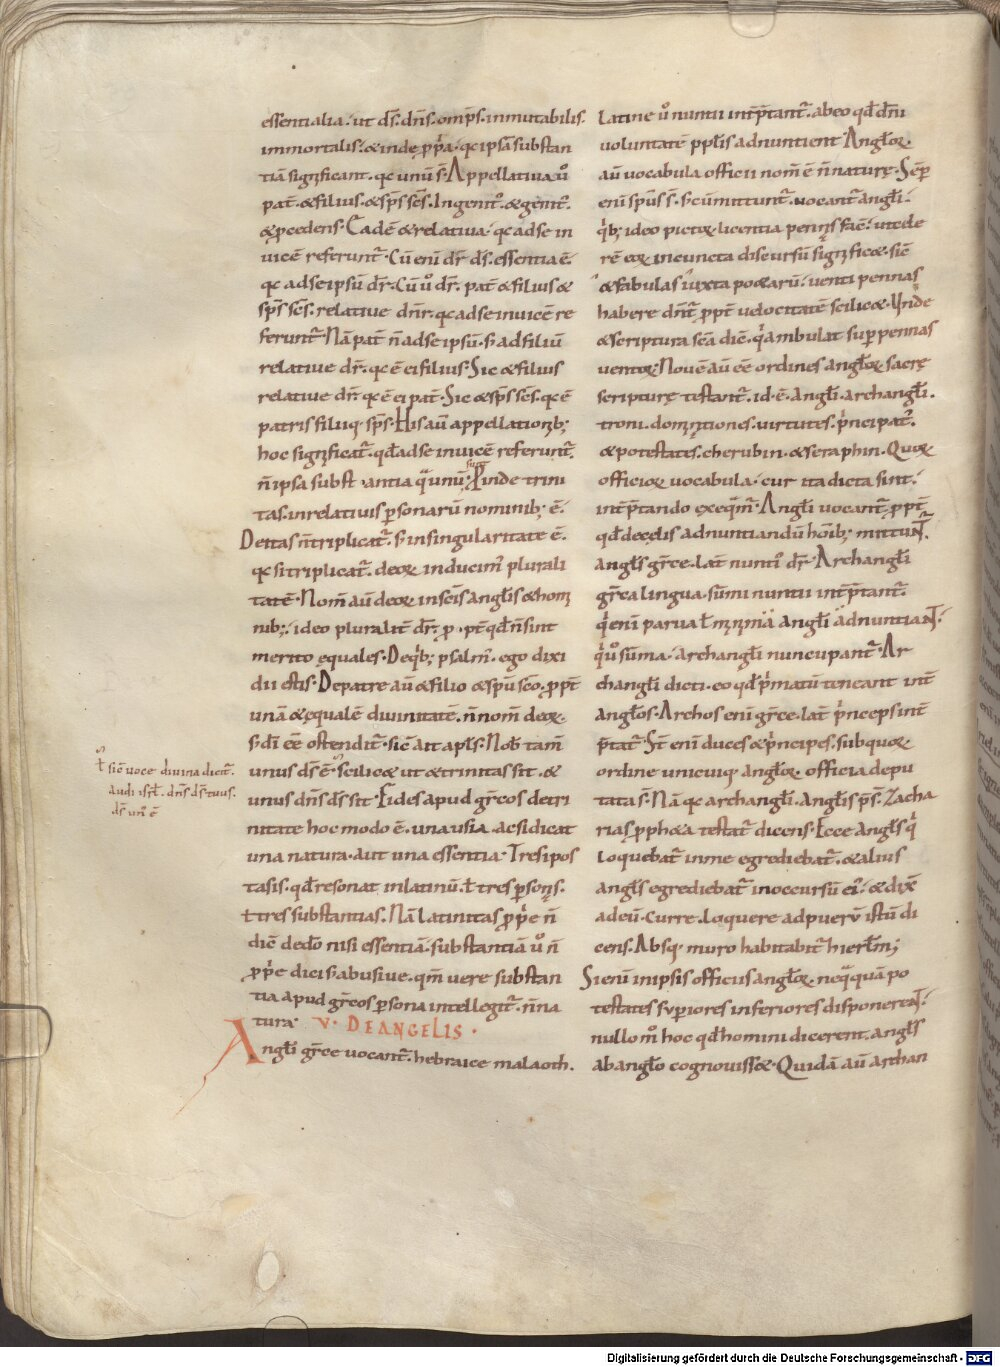 essentialia. ut ds̄. dn̄s. omp̄s. inmutabilis.
immortalis. & inde ꝓp̄a. qc ipsā substan
tiā significant. qc unū s̄. Appellatiua u̇o
pat̄. & filius. & sp̄s sc̄s. Ingenit᷒. & genit᷒.
& ꝓcedens. Eadē & relatiua. qc ad se in
uicē referunt᷑. Cū eni dr̄ ds̄. essentia ē.
qc ad se ipsū dr̄. Cū u̇o dr̄. pat̄ & filius &
sp̄s sc̄s. relatiue dn̄r. qc ad se inuicē re
ferunt᷑. Nā pat̄ n̄ ad se ipsū. s; ad filiū
relatiue dr̄. qc ē ei filius. Sic & filius
relatiue dr̄. qc ē ei pat̄. Sic & sp̄s sc̄s. qc ē
patris filiiq. sp̄s. His aū appellationib;
hoc significat᷑. qd̄ ad se inuicē referunt᷑.
n̄ ipsa subst antia qua unū s̄. Proinde trini
tas. in relatiuis ꝑsonarū nominib; ē.
Deitas n̄ triplicat᷑. s; in singularitate ē.
qc si triplicat᷑. deoꝝ inducim᷒ plurali
tatē. Nom̄ aū deoꝝ in sc̄is angl̄is & homi
nib;. ideo pluralit̄ dr̄. ꝓ pt̄ qd̄ n̄ sint
merito ęquales. De qb; psalm᷒. ego dixi
dii estis. De patre aū & filio & sp̄u sc̄o. ꝓpt̄
unā & ęqualē diuinitatē. n̄ nom̄ deoꝝ.
s; di ēē ostendit᷑. sic̄ ait apl̄s. Nob̄ tam̄
unus ds̄ ē. scilic& ut & trinitas sit. &
unus dn̄s ds̄ sit. Fides apud grēcos de tri
nitate hoc modo ē. una usia. ac si dicat
una natura. aut una essentia. Tres ipos
tasis. qd̄ resonat in latinū. ł tres ꝑsonęs.
ł tres substantias. Nā latinitas ꝓprie n̄
dic̄ de do nisi essentiā. substantiā u̇o n̄
ꝓprie dici s; abusiue. qm̄ uere substan
tia apud grēcos ꝑsona intellegit᷑. n̄ na
tura. V. DE ANGELIS.
Angl̄i grēce uocant᷑. hebraice malaoth.
ł sic̄ uoce diuina dicit᷑.
audi isrl̄. dn̄s ds̄ tuus.
ds̄ un᷒ ē
Latine u̇o nuntii int̄p̄tant᷑. ab eo qd̄ dn̄i
uoluntatē ppl̄is adnuntient. Angl̄oꝝ.
aū uocabula officii nom̄ ē n̄ naturę. Semꝑ
eni sp̄us s̄. s; cū mittunt᷑. uocant᷑ angl̄i.
qb; ideo pictoꝝ licentia pennęs fac̄. ut cele
rē eoꝝ in cuncta discursū signific&. sic̄
& fabulas iuxta po&arū. uenti pennas
habere dn̄t᷑ ꝓpt̄ uelocitatē scilic&. Unde
& scriptura sc̄a dic̄. qi ambulat suꝑ pennas
uentoꝝ. Nouē aū ēē ordines angl̄oꝝ sacrę
scripturę testant᷑. id. ē. angl̄i. archangl̄i.
troni. dominationes. uirtutes. p̄ncipat᷒.
& potestates. cherubin. & seraphin. Quoꝝ
officioꝝ uocabula. cur ita dicta sint.
int̄p̄tando exeqm̄. Angl̄i uocant᷑ ꝓpt̄
qd̄ de cęlis ad nuntiandū hoīb; mittunt᷑.
angl̄s grēce. lat̄ nunti᷒ dr̄. Archangl̄i
grēca lingua. sūmi nuntii int̄p̄tant᷑.
qi eni parua ł minima angl̄i adnuntiant᷑.
qi u̇o sūma. archangl̄i nuncupant᷑. Ar
changl̄i dicti. eo qd̄ pimatū teneant int̄
angl̄os. Archos eni grēce. lat̄ pinceps int̄
p̄tat᷑. St̄ eni duces & pincipes. sub quoꝝ
ordine unicuiq. angl̄oꝝ. officia depu
tata s̄. Nā qc archangl̄i. angl̄is p̄s̄. Zacha
rias ꝓph&a testat᷑ dicens. Ecce angl̄s qi
loquebat᷑ in me egrediebat᷑. & alius
angl̄s egrediebat᷑ in occursū ei᷒. & dix̄
ad eū. Curre. loquere ad puerū istū di
cens. Absq. muro habitabit᷑ hierl̄m;
Si eni in ipsis officiis angl̄oꝝ. neqͣquā po
testates suꝑiores inferiores disponerent᷑.
nullo m̊ hoc qd̄ homini dicerent. angl̄s
ab angl̄o cognouiss&. Quidā aū archan
Digitalisierung gefördert durch die Deutsche Forschungsgemeinschaft - DFG